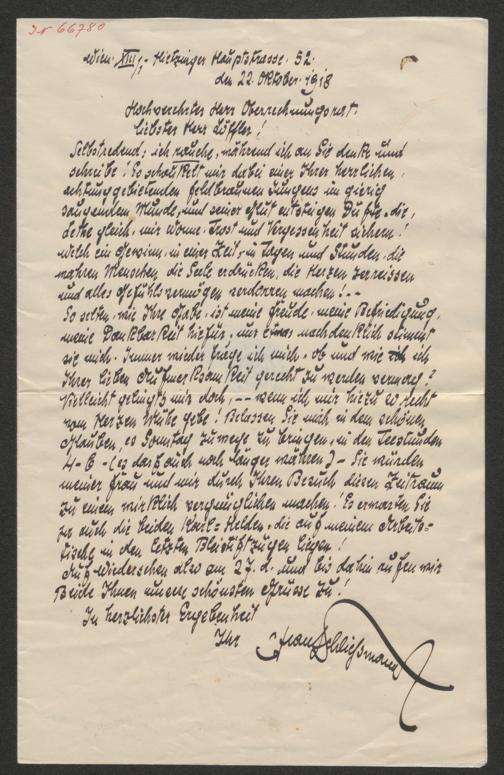 IN 66780
Wien. XIII/1. Hietzinger Hauptstrasse. 52.
den 22. Oktober. 1918
Hochverehrter Herr Oberrechnungsrat.
liebster Herr Löffler!
Selbstredend, ich rauche, während ich an Sie denke und
schreibe! Es schaukelt mir dabei einer Ihrer herrlichen,
achtunggebietenden feldbraunen Jungens im gierig
saugenden Munde, und seiner Glut entsteigen Düfte, die,
Lethe gleich, mir Wonne, Trost und Vergessenheit sichern!
Welch ein Gewinn, in einer Zeit, in Tagen und Stunden, die
wahren Menschen die Seele erdrücken, die Herzen zerreissen
und alles Gefühlsvermögen verdorren machen! --
So selten, wie Ihre Gabe, ist meine Freude, meine Befriedigung,
meine Dankbarkeit hiefür, nur etwas nachdenklich stimmt
sie mich. Immer wieder frage ich mich, ob und wie ich
Ihrer lieben Aufmerksamkeit gerecht zu werden vermag?
Vielleicht gelingt's mir doch, -- wenn ich mir hiezu so recht
vom Herzen Mühe gebe! Belassen Sie mich in dem schönen
Glauben, es Sonntag zuwege zu bringen, in den Teestunden
4-6-(es darf auch noch länger währen)- Sie würden
meiner Frau und mir durch Ihren Besuch diesen Zeitraum
zu einem wirklich vergnüglichen machen! Es erwarten Sie
ja auch die beiden Karl-Helden, die auf meinem Arbeits-
tische in den letzten Bleistiftzügen liegen!
Auf Wiedersehen also am 27. d. und bis dahin rufen wir
Beide Ihnen unsere schönsten Grüsse zu!
In herzlichster Ergebenheit
Ihr Hans Schließmann